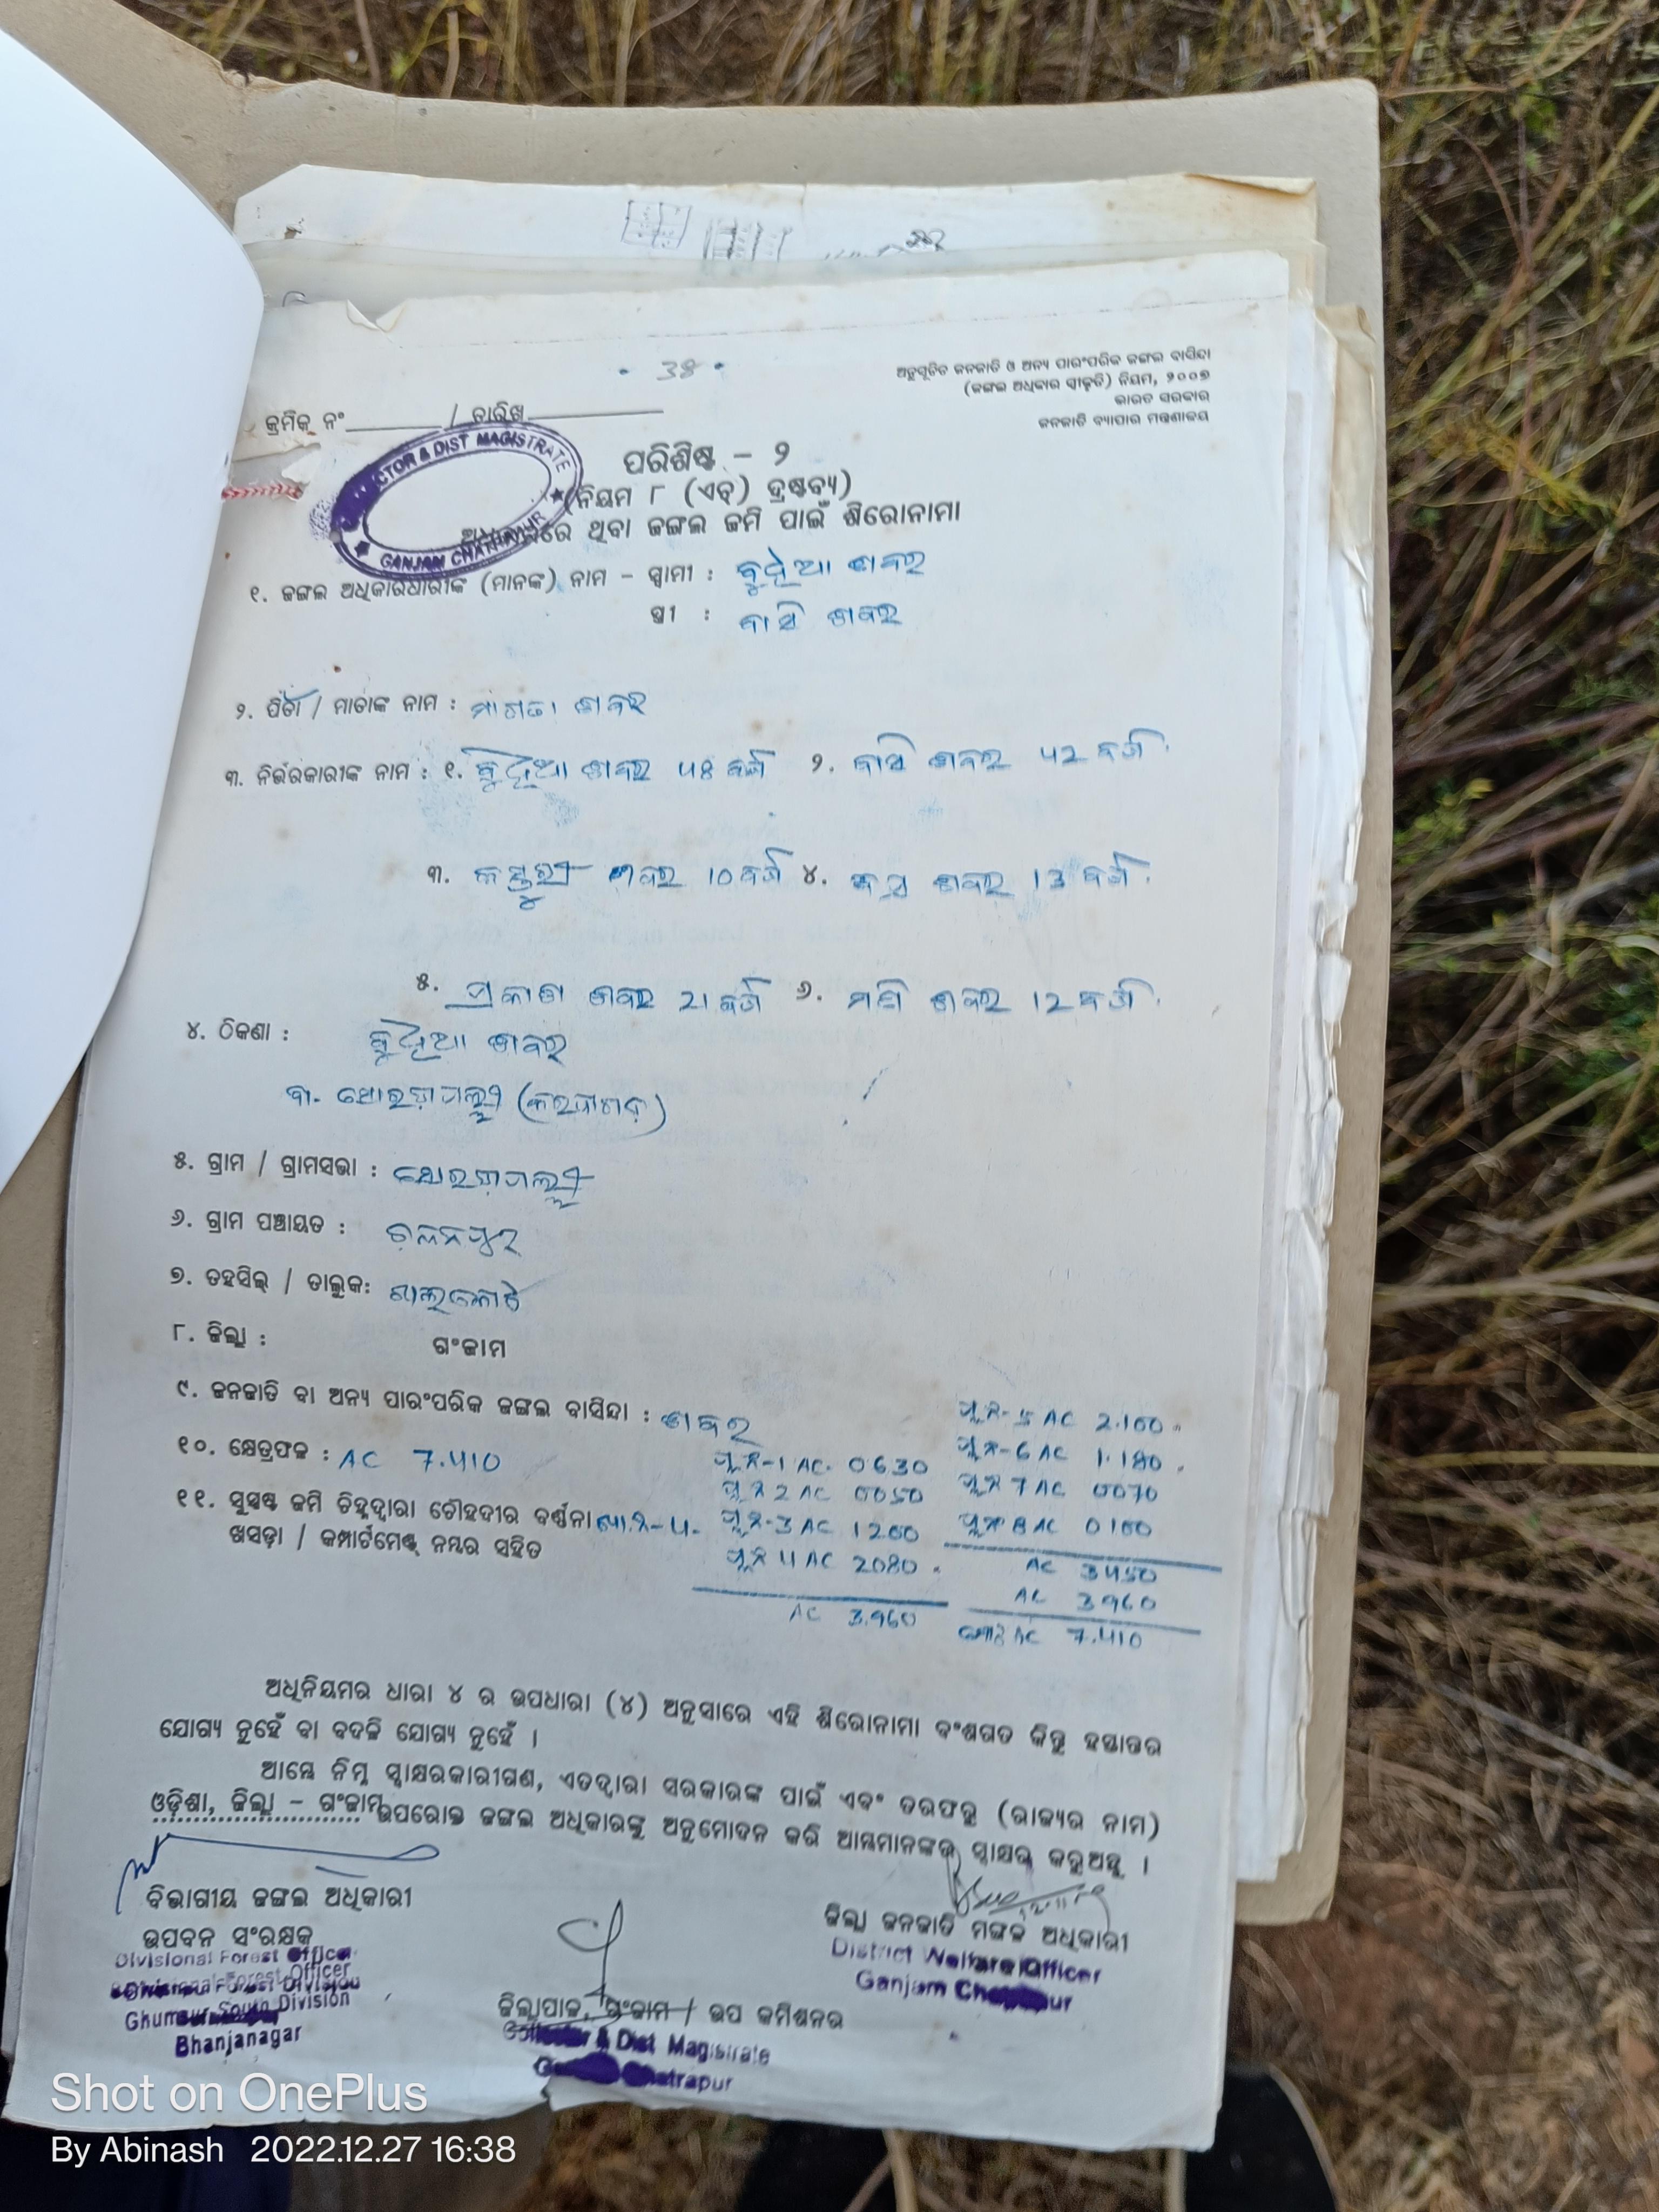 • 38 •
ଅନୁସୂଚିତ ଜନଜାତି ଓ ଅନ୍ୟ ପାରଂପରିକ ଜଙ୍ଗଲ ବାସିନ୍ଦା
(ଜଙ୍ଗଲ ଅଧିକାର ସ୍ୱୀକୃତି) ନିୟମ, ୨୦୦୭
ଭାରତ ସରକାର
ଜନଜାତି ବ୍ୟାପାର ମନ୍ତ୍ରଣାଳୟ
କ୍ରମିକ ନଂ ______ / ତାରିଖ ______
CTOR & DIST MAGISTRATE
GANJAM CHATRAPUR
ପରିଶିଷ୍ଟ – ୨
(ନିୟମ ୮ (ଏଚ୍) ଦ୍ରଷ୍ଟବ୍ୟ)
ଥିବା ଜଙ୍ଗଲ ଜମି ପାଇଁ ଶିରୋନାମା
୧. ଜଙ୍ଗଲ ଅଧିକାରଧାରୀଙ୍କ (ମାନଙ୍କ) ନାମ – ସ୍ୱାମୀ : ବୁଦ୍ଧିଆ ଶବର
ସ୍ତ୍ରୀ : ବାସି ଶବର
୨. ପିତା / ମାତାଙ୍କ ନାମ : ଶବର
୩. ନିର୍ଭରକାରୀଙ୍କ ନାମ : ୧. ବୁଦ୍ଧିଆ ଶବର ୪୫ ବର୍ଷ ୨. ବାସି ଶବର ୪2 ବର୍ଷ
୩. କସ୍ତୁରୀ ଶବର 10 ବର୍ଷ ୪. ଶବର 13 ବର୍ଷ
୫. ପ୍ରକାଶ ଶବର 21 ବର୍ଷ ୬. ମଣି ଶବର 12 ବର୍ଷ
୪. ଠିକଣା : ବୁଦ୍ଧିଆ ଶବର
୫. ଗ୍ରାମ / ଗ୍ରାମସଭା :
୬. ଗ୍ରାମ ପଞ୍ଚାୟତ :
୭. ତହସିଲ୍ / ତାଲୁକ:
୮. ଜିଲ୍ଲା : ଗଂଜାମ
୯. ଜନଜାତି ବା ଅନ୍ୟ ପାରଂପରିକ ଜଙ୍ଗଲ ବାସିନ୍ଦା : ଶବର
୧୦. କ୍ଷେତ୍ରଫଳ : AC 7.410
୧୧. ସୁସ୍ପଷ୍ଟ ଜମି ଚିହ୍ନଦ୍ୱାରା ଚୌହଦୀର ବର୍ଣ୍ଣନା
ଖସଡ଼ା / କମ୍ପାର୍ଟମେଣ୍ଟ ନମ୍ବର ସହିତ
ପ୍ଲଟ-1 AC. 0630
ପ୍ଲଟ 2 AC 0050
ପ୍ଲଟ-3 AC 1200
ପ୍ଲଟ 4 AC 2080
AC 3.960
ପ୍ଲଟ-5 AC 2.100
ପ୍ଲଟ-6 AC 1.180
ପ୍ଲଟ 7 AC 0070
ପ୍ଲଟ 8 AC 0100
AC 3450
AC 3960
ମୋଟ AC 7.410
ଅଧିନିୟମର ଧାରା ୪ ର ଉପଧାରା (୪) ଅନୁସାରେ ଏହି ଶିରୋନାମା ବଂଶଗତ କିନ୍ତୁ ହସ୍ତାନ୍ତର
ଯୋଗ୍ୟ ନୁହେଁ ବା ବଦଳି ଯୋଗ୍ୟ ନୁହେଁ ।
ଆମ୍ଭେ ନିମ୍ନ ସ୍ୱାକ୍ଷରକାରୀଗଣ, ଏତଦ୍ଦ୍ୱାରା ସରକାରଙ୍କ ପାଇଁ ଏବଂ ତରଫରୁ (ରାଜ୍ୟର ନାମ)
ଓଡ଼ିଶା, ଜିଲ୍ଲା – ଗଂଜାମ ଉପରୋକ୍ତ ଜଙ୍ଗଲ ଅଧିକାରଙ୍କୁ ଅନୁମୋଦନ କରି ଆମ୍ଭମାନଙ୍କର ସ୍ୱାକ୍ଷର କରୁଅଛୁ ।
ବିଭାଗୀୟ ଜଙ୍ଗଲ ଅଧିକାରୀ
ଉପବନ ସଂରକ୍ଷକ
Divisional Forest Officer
Ghumsur South Division
Bhanjanagar
ଜିଲ୍ଲାପାଳ, ଗଂଜାମ / ଉପ କମିଶନର
Collector & Dist Magistrate
Chatrapur
ଜିଲ୍ଲା ଜନଜାତି ମଙ୍ଗଳ ଅଧିକାରୀ
District Welfare Officer
Ganjam
Shot on OnePlus
By Abinash 2022.12.27 16:38